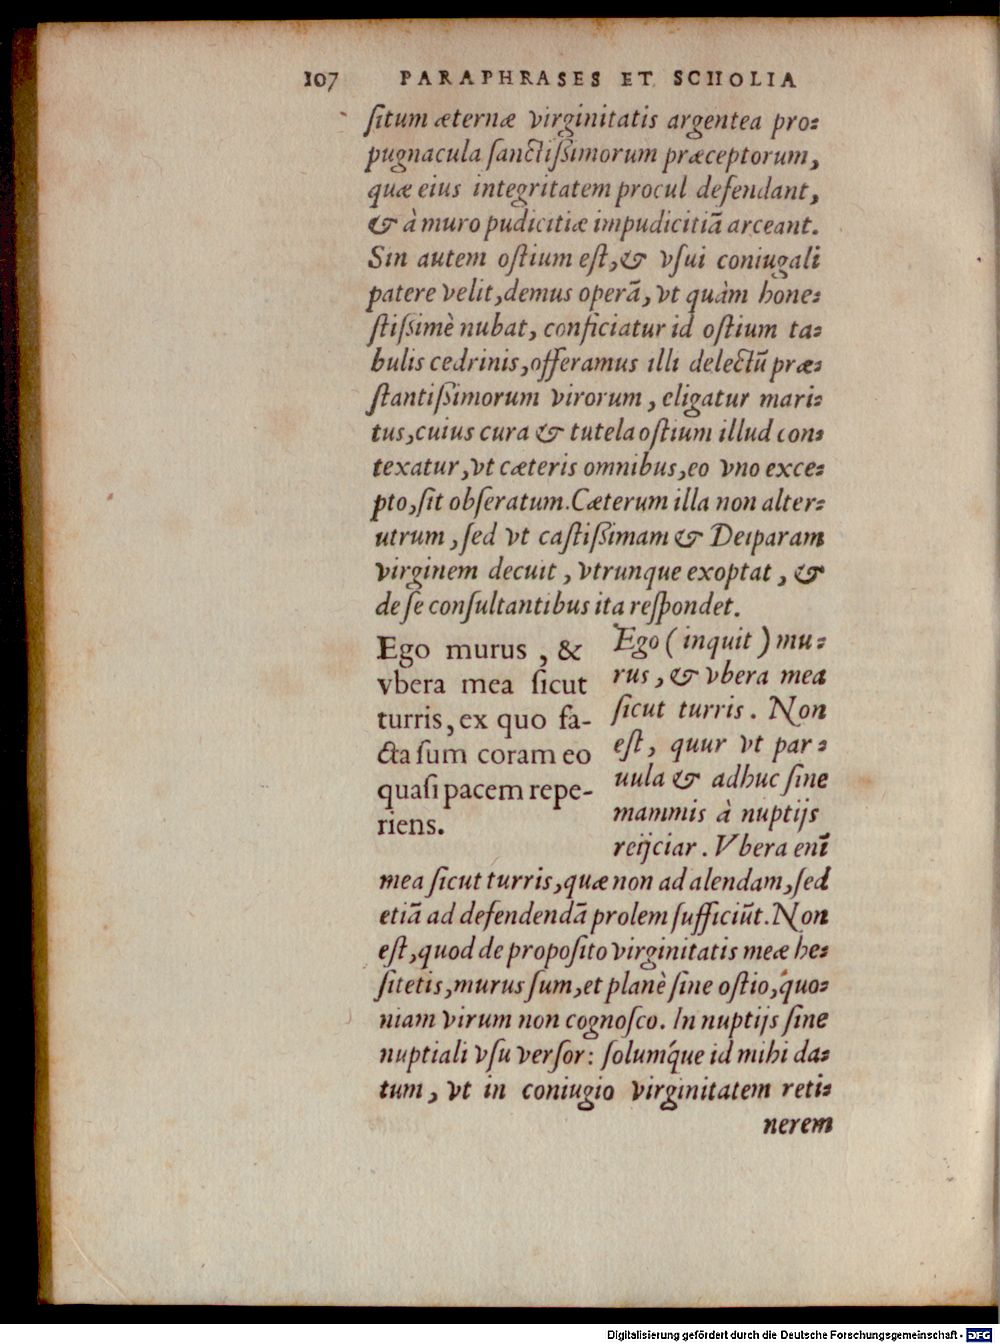 107 PARAPHRASES ET SCHOLIA
ſitum æternæ virginitatis argentea pro⸗
pugnacula ſanctiſſimorum præceptorum,
quæ eius integritatem procul defendant,
& à muro pudicitiæ impudicitiā arceant.
Sin autem oſtium eſt, & vſui coniugali
patere velit, demus operā, vt quàm hone⸗
ſtiſſimè nubat, conficiatur id oſtium ta⸗
bulis cedrinis, offeramus illi delectū præ⸗
ſtantiſſimorum virorum, eligatur mari⸗
tus, cuius cura & tutela oſtium illud con⸗
texatur, vt cæteris omnibus, eo vno exce⸗
pto, ſit obſeratum. Cæterum illa non alter⸗
utrum, ſed vt caſtiſſimam & Deiparam
virginem decuit, vtrunque exoptat, &
de ſe conſultantibus ita reſpondet.
Ego murus, &
vbera mea ſicut
turris, ex quo fa-
cta ſum coram eo
quaſi pacem repe-
riens.
Ego (inquit) mu⸗
rus, & vbera mea
ſicut turris. Non
eſt, quur vt par⸗
uula & adhuc ſine
mammis à nuptijs
reijciar. Vbera enī
mea ſicut turris, quæ non ad alendam, ſed
etiā ad defendendā prolem ſufficiūt. Non
eſt, quod de propoſito virginitatis meæ he⸗
ſitetis, murus ſum, et planè ſine oſtio, quo⸗
niam virum non cognoſco. In nuptijs ſine
nuptiali vſu verſor: ſolumq́ue id mihi da⸗
tum, vt in coniugio virginitatem reti⸗
nerem
Digitalisierung gefördert durch die Deutsche Forschungsgemeinschaft - DFG